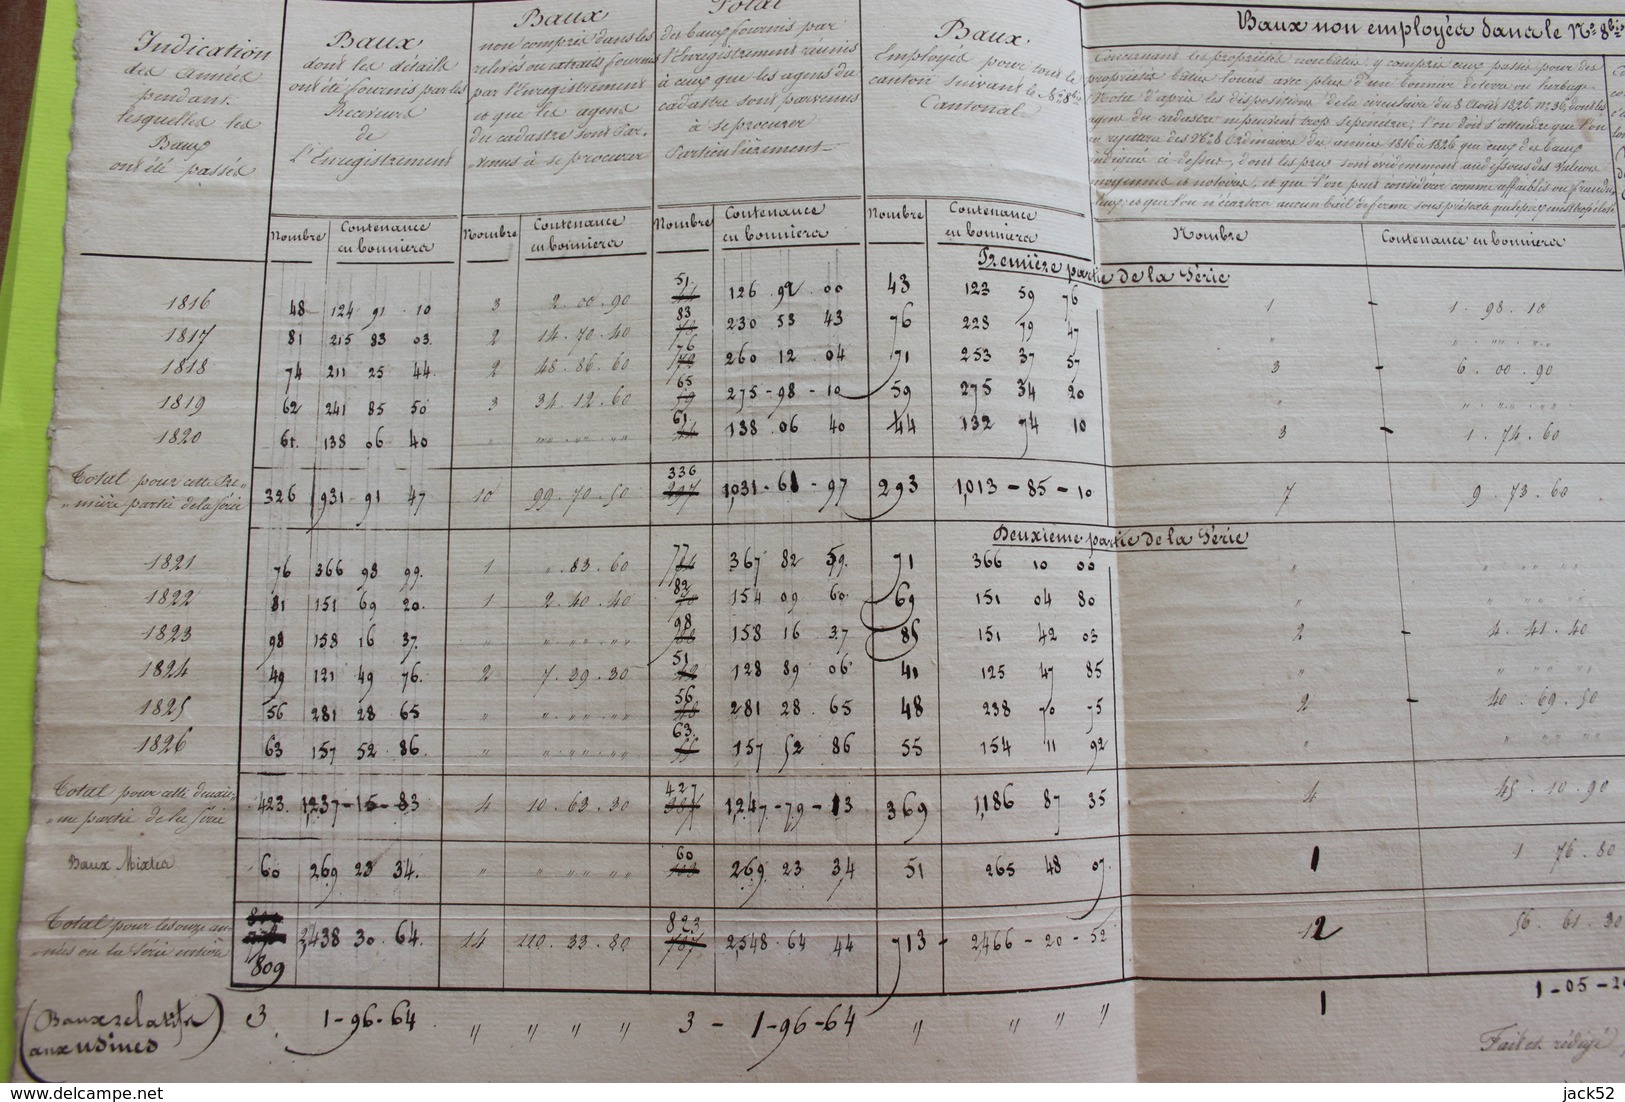 Indication
des Années
pendant
lesquelles les
Baux
ont été passés
Baux
dont les détails
ont été fournis par les
Receveurs
de
l'Enregistrement
Baux
non compris dans les
relevés ou extraits fournis
par l'Enregistrement
et que les agens
du cadastre sont par-
venus à se procurer
Total
des baux fournis par
l'Enregistrement réunis
à ceux que les agens du
cadastre sont parvenus
à se procurer
Particulièrement
Baux
Employés pour tout le
canton suivant le No. 8 bis
Cantonal
Baux non employés dans le No. 8 bis
Concernant les propriétés non bâties, y compris ceux passés pour des
propriétés bâties louées avec plus d'un bonnier de terre ou herbage
Nota d'après les dispositions de la circulaire du 8 Août 1826 No. 36, dont les
agens du cadastre ne peuvent trop se pénétrer; l'on doit s'attendre que l'on
rejettera des No. 8 Cadémaires des années 1816 à 1826 que ceux des baux
indiqués ci dessus, dont les prix sont évidemment au dessous des valeurs
moyennes et notoires, et que l'on peut considérer comme affaiblis ou fraudu-
leux; et que l'on n'écartera aucun bail de ferme sous prétexte que le prix
Nombre Contenance en bonniers Nombre Contenance en bonniers Nombre Contenance en bonniers Nombre Contenance en bonniers Nombre Contenance en bonniers
Première partie de la Série
1816 48 124 91 10 3 2 . 00 . 90 51 126 . 92 . 00 43 123 59 76 1 - 1 . 98 . 10
1817 81 215 83 03 2 14 . 70 . 40 83 230 53 43 76 228 79 47 " " . "" . ""
1818 74 211 25 44 2 48 . 86 . 60 76 260 12 . 04 71 253 37 57 3 - 6 . 00 . 90
1819 62 241 85 50 3 34 . 12 . 60 65 275 - 98 - 10 59 275 34 20 " " . "" . ""
1820 61 138 06 40 " "" . "" . "" 61 138 . 06 40 44 132 74 10 3 - 1 . 74 . 60
Total pour cette Pre-
mière partie de la Série 326 931 - 91 47 10 99 . 70 . 50 336 297 1,031 - 61 - 97 293 1,013 - 85 - 10 7 9 . 73 . 60
Deuxième partie de la Série
1821 76 366 98 99 1 " . 83 . 60 77 367 82 59 71 366 10 00 " " "" ""
1822 81 151 69 20 1 2 . 40 . 40 82 154 09 60 69 151 04 80 " " "" ""
1823 98 158 16 37 " " . "" . "" 98 158 16 37 85 151 42 03 2 - 4 . 41 . 40
1824 49 121 49 76 2 7 . 39 . 30 51 128 89 06 41 125 47 85 " " "" ""
1825 56 281 28 65 " " . "" . "" 56 281 28 . 65 48 238 70 75 2 - 40 . 69 . 50
1826 63 157 52 86 " " . "" . "" 63 157 52 86 55 154 11 92 " " "" ""
Total pour cette deuxiè-
me partie de la Série 423 1,237 - 15 - 83 4 10 . 63 . 30 427 1,247 - 79 - 13 369 1,186 87 35 4 45 . 10 . 90
Baux Mixtes 60 269 23 34 " " "" "" 60 269 23 34 51 265 48 07 1 1 76 . 80
Total pour les onze an-
nées ou la Série entière 809 2,438 30 . 64 14 110 . 33 . 80 823 787 2,548 . 64 44 713 - 2466 - 20 - 52 12 56 . 61 . 30
(Baux relatifs
aux usines) 3 1 - 96 - 64 " " " " 3 - 1 - 96 - 64 " " " " 1 1 - 05 - 20
Fait et rédigé
delcampe.net
jack52